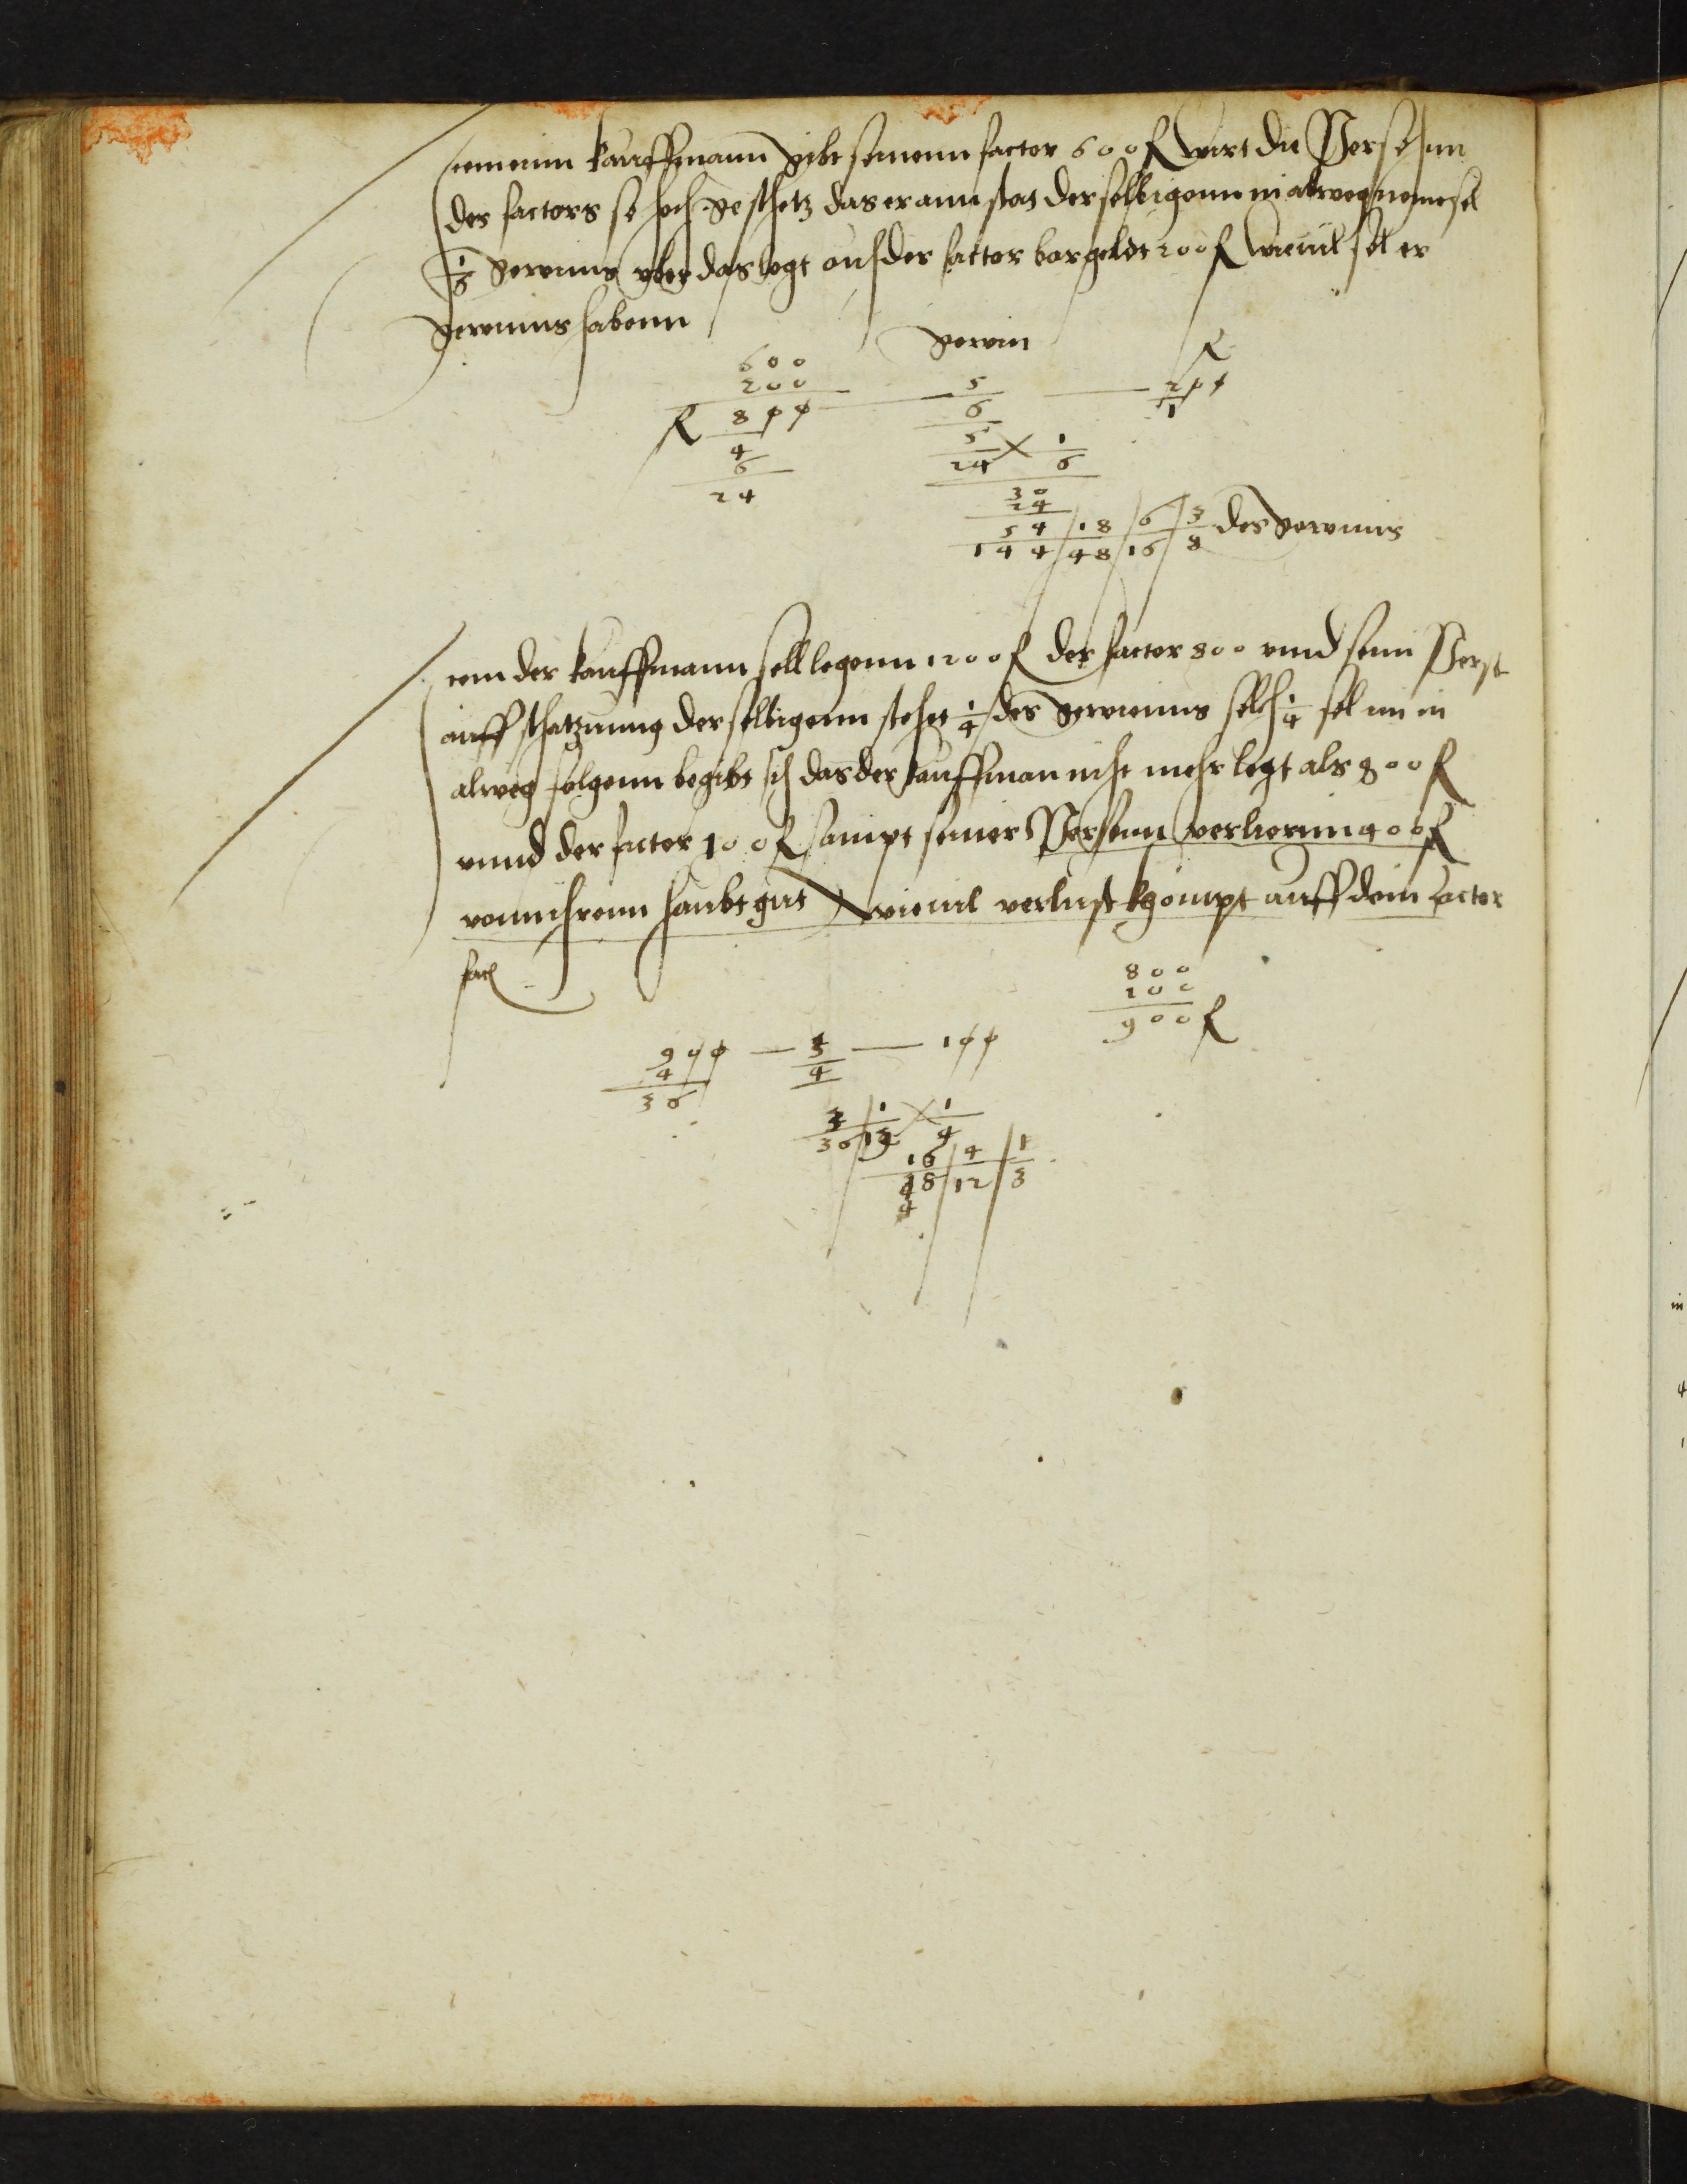 Item einn kauffmann gibt seinenn factor 600 fl wirt die Persohnn
des factors so hoch geschetz das er ann stat derselbigenn in alweg nemē sol
1/6 gewinns vber das legt auch der factor bargeldt 200 fl wieuil sol er
gewinns habenn
600 gewin fl
200
fl 800 — 5/6 — 200
4 1
6 5/24 × 1/6
24
30
24
54/144 / 18/48 / 6/16 / 3/8 des gewinns
Item der kauffmann soll legenn 1200 fl der factor 800 vnnd seinn Persō
auff schatzunng derselbigenn stehet 1/4 des gewinns solch 1/4 sol im in
alweg folgenn begibt sich das der kauffman nicht mehr legt als 800 fl
vnnd der factor 100 fl sampt seiner Persohnn verlierenn 400 fl
vonn ihrenn haubtgut wieuil verlust kompt auff denn factor
fac
800
100
900 fl
900 — 3/4 — 100
4
36
3/36 / 1/12 × 1/4
16/48 / 4/12 / 1/3